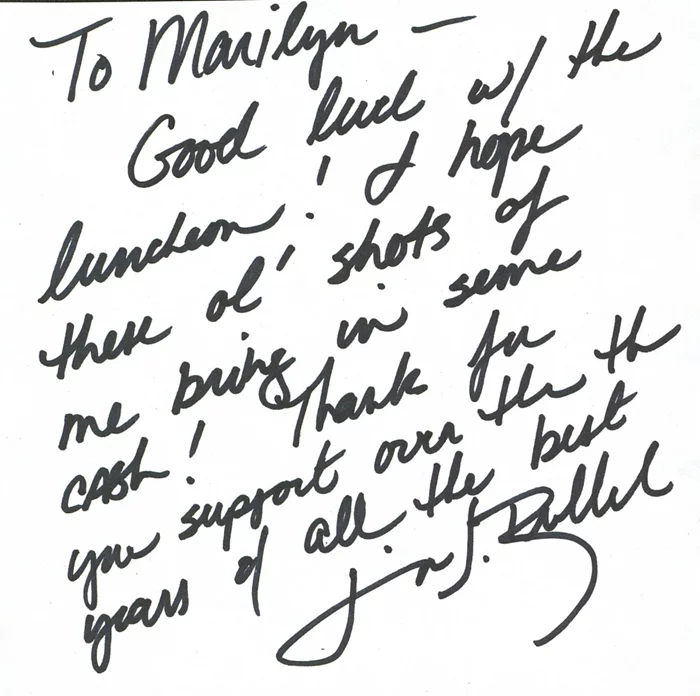 To Marilyn —
Good luck w/ the
luncheon! I hope
these ol' shots of
me bring in some
cash! Thank for
you support over the th
years & all the best
Jim J. Bullock